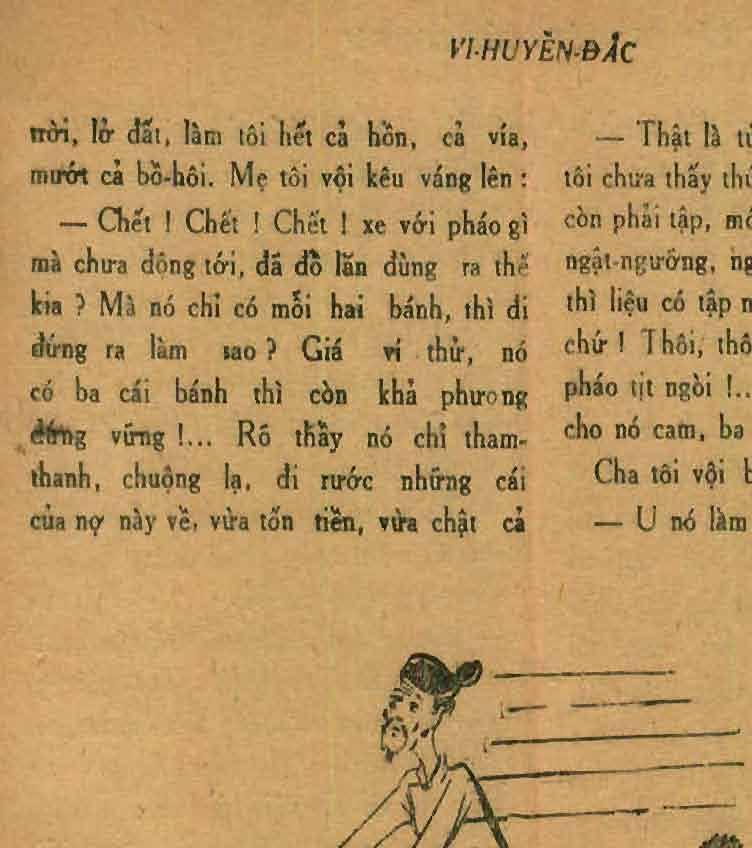 VI-HUYỀN-ĐẮC
trời, lở đất, làm tôi hết cả hồn, cả vía,
mướt cả bồ-hôi. Mẹ tôi vội kêu váng lên :
— Chết ! Chết ! Chết ! xe với pháo gì
mà chưa động tới, đã đồ lăn đùng ra thế
kia ? Mà nó chỉ có mỗi hai bánh, thì đi
đứng ra làm sao ? Giá ví thử, nó
có ba cái bánh thì còn khả phương
đứng vững !... Rõ thầy nó chỉ tham-
thanh, chuộng lạ, đi rước những cái
của nợ này về, vừa tốn tiền, vừa chật cả
— Thật là
tôi chưa thấy
còn phải tập,
ngật-ngưỡng,
thì liệu có tập
chứ ! Thôi,
pháo tịt ngòi !..
cho nó cam, ba
Cha tôi vội
— U nó làm